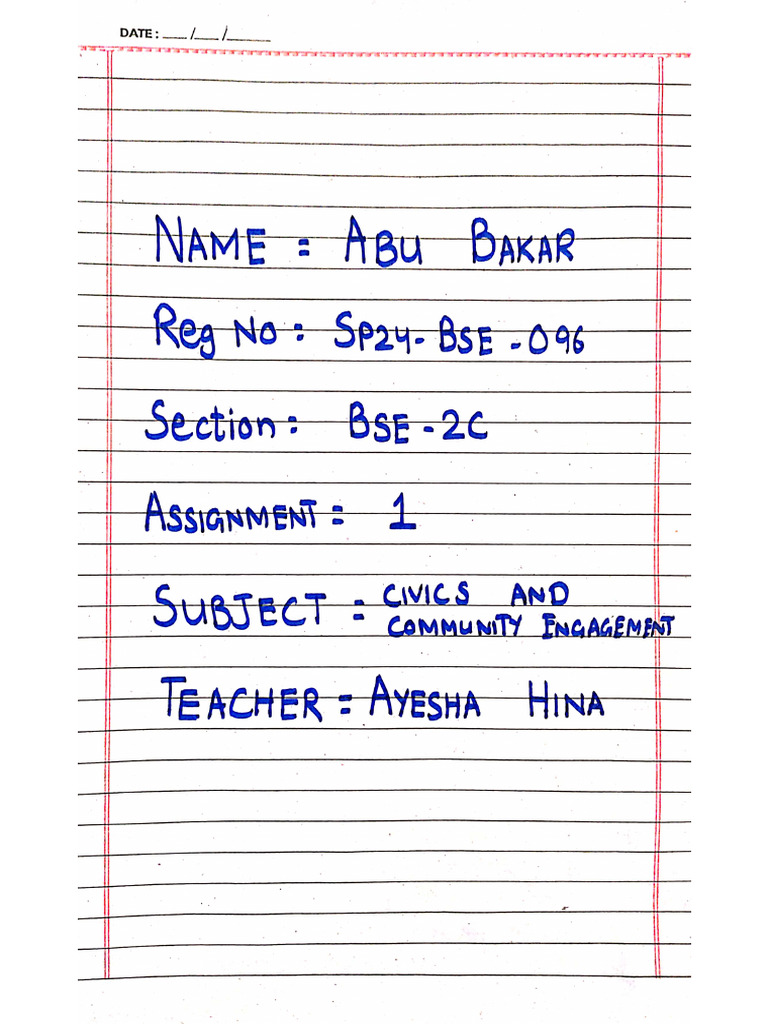 DATE: ___/___/______
NAME = ABU BAKAR
Reg No: SP24-BSE-096
Section: BSE-2C
ASSIGNMENT = 1
SUBJECT = CIVICS AND
COMMUNITY ENGAGEMENT
TEACHER = AYESHA HINA